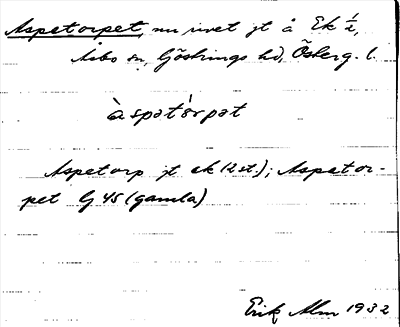 Aspetorpet, nu rivet jt å Ek ½,
Åsbo sn, Göstrings hd, Österg. l.
àspətórpət
Aspetorp jt ek (2 st.); Aspetor-
pet Lj 45 (gamla)
Erik Alm 1932